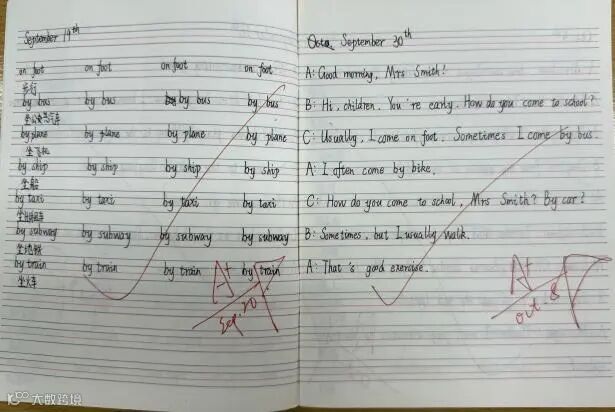 September 19th
on foot on foot on foot on foot
步行
by bus by bus by bus by bus
坐公共汽车
by plane by plane by plane by plane
坐飞机
by ship by ship by ship by ship
坐船
by taxi by taxi by taxi by taxi
坐出租车
by subway by subway by subway by subway
坐地铁
by train by train by train by train
坐火车
A+
Sep. 20
September 30th
A: Good morning, Mrs Smith!
B: Hi, children. You're early. How do you come to school?
C: Usually, I come on foot. Sometimes I come by bus.
A: I often come by bike.
C: How do you come to school, Mrs Smith? By car?
B: Sometimes, but I usually walk.
A: That's good exercise.
A+
Oct. 8
大数跨境